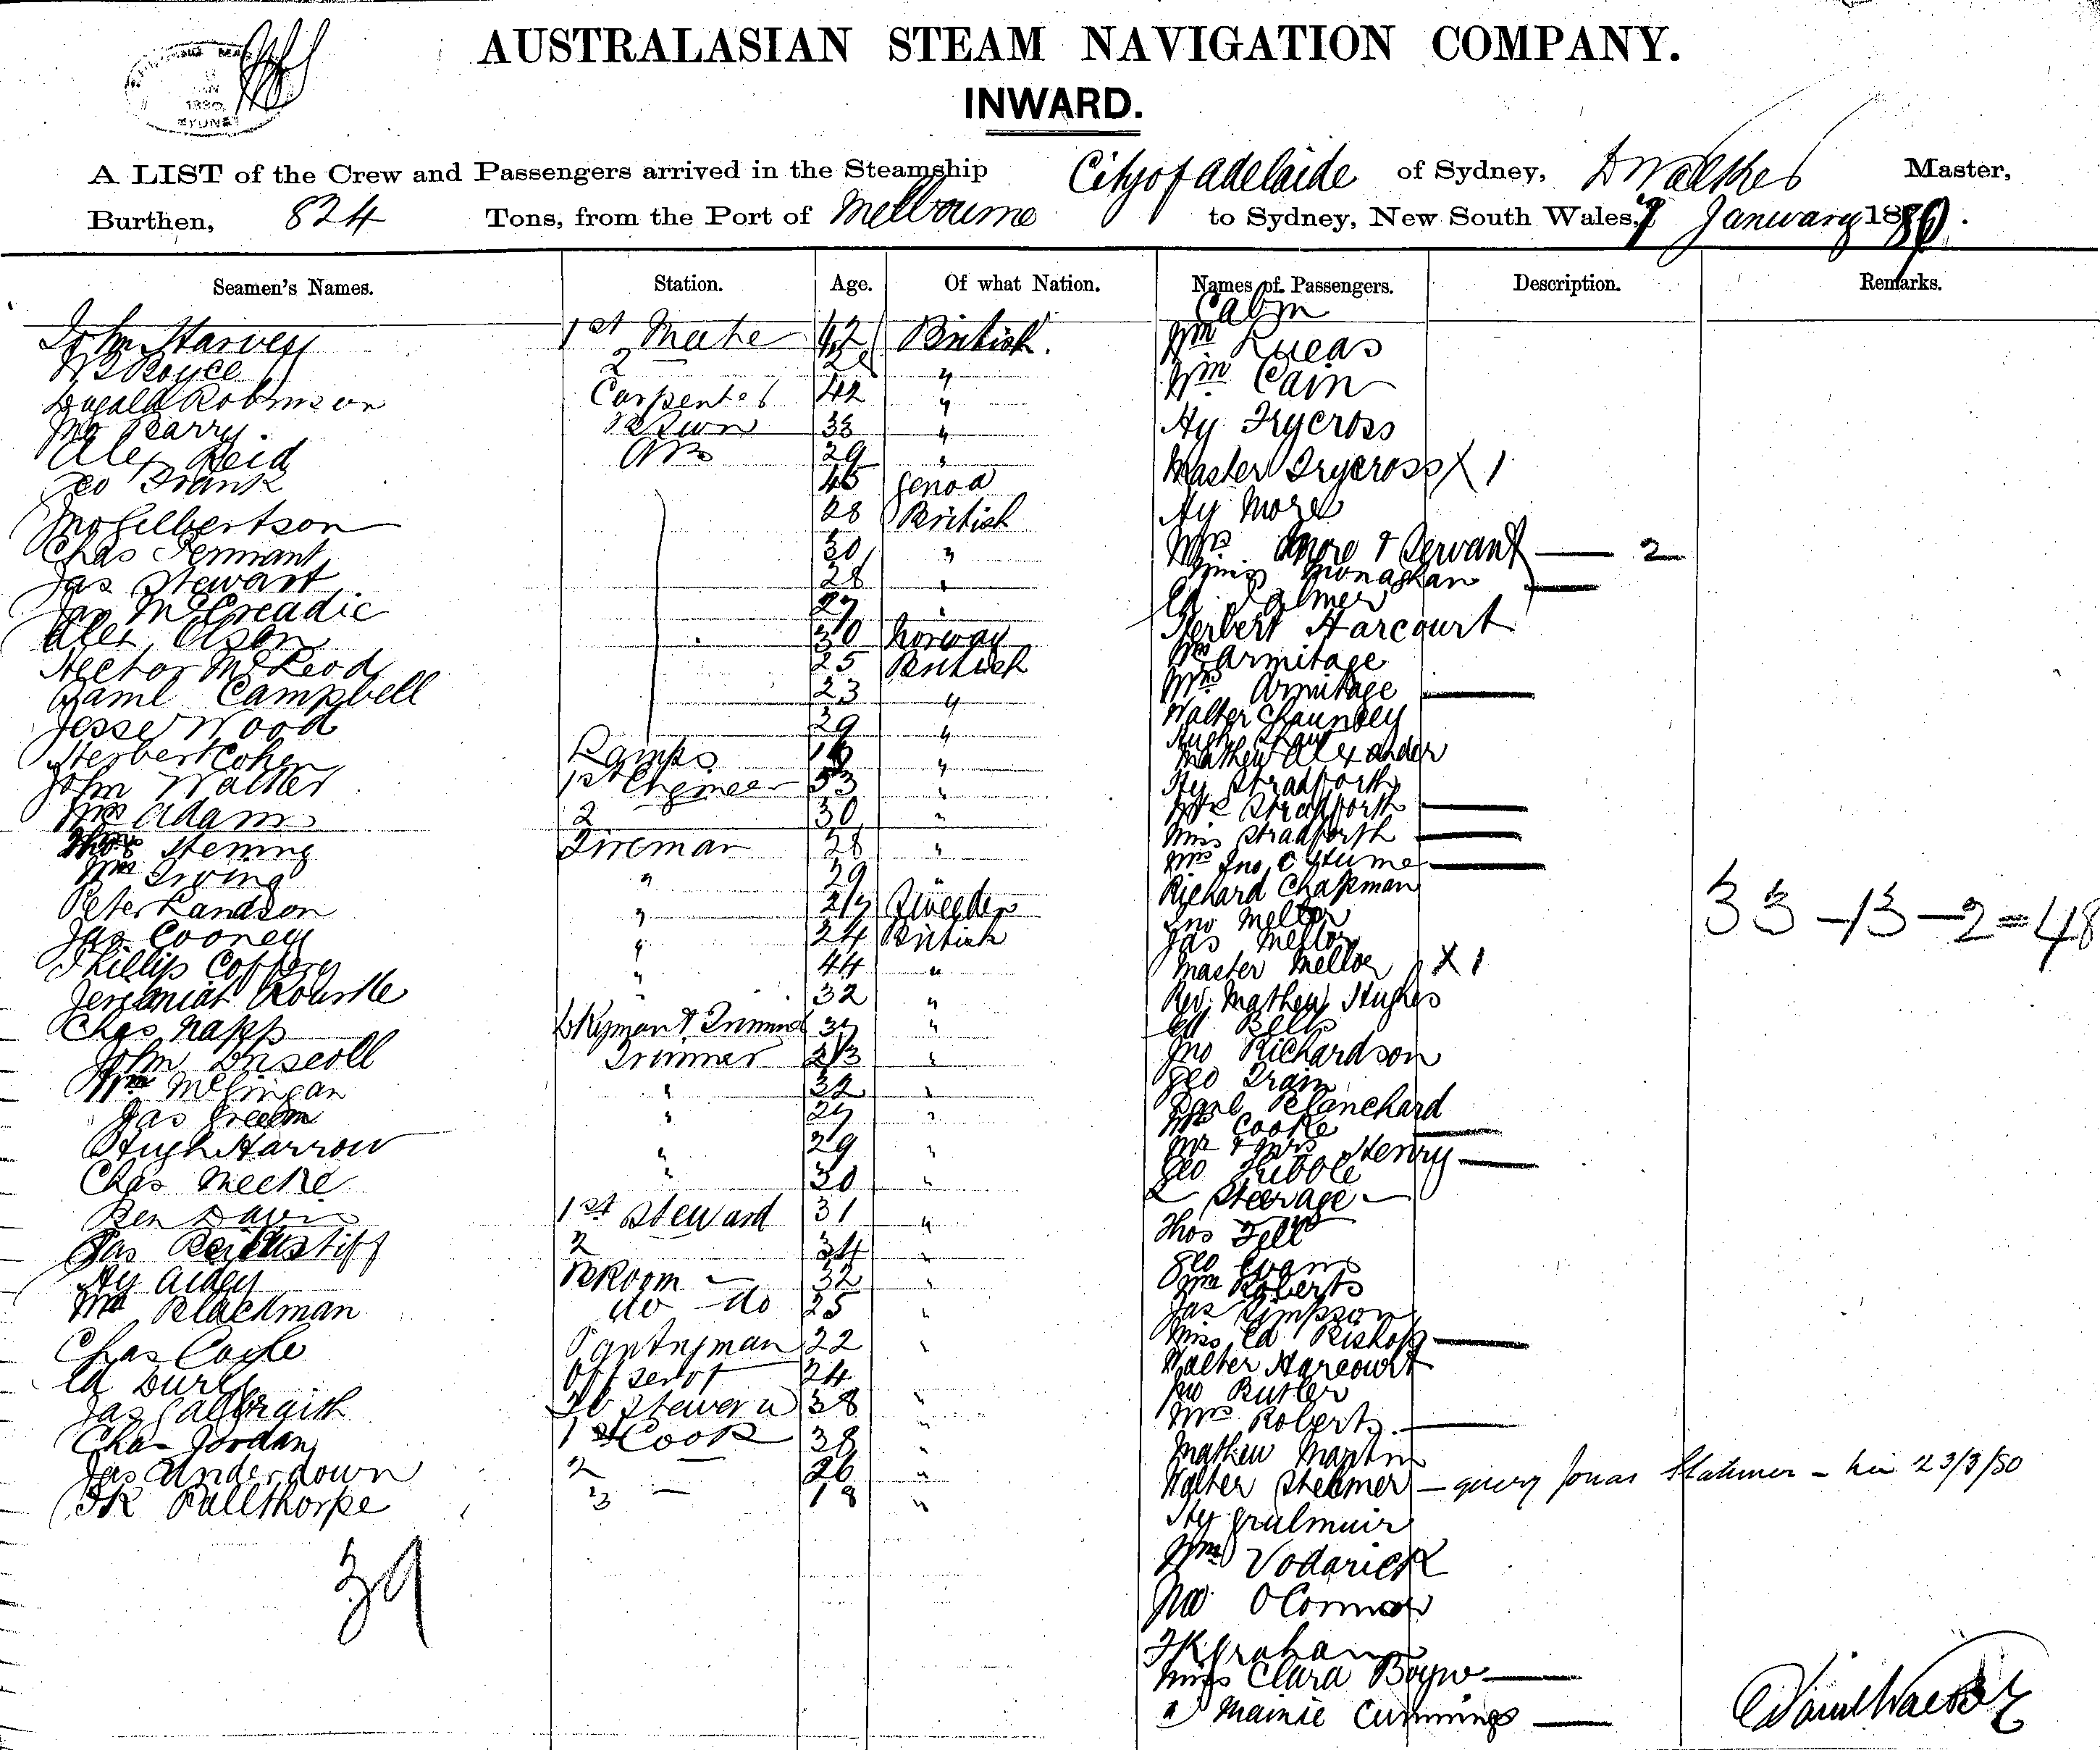 AUSTRALASIAN STEAM NAVIGATION COMPANY.
INWARD.
SYDNEY
A LIST of the Crew and Passengers arrived in the Steamship City of Adelaide of Sydney, D Walker Master,
Burthen, 824 Tons, from the Port of Melbourne to Sydney, New South Wales, January 1880.
Seamen's Names. Station. Age. Of what Nation. Names of Passengers. Description. Remarks.
Cabin
John Harvey 1st Mate 42 British. Wm Lucas
Royce 2 — " Wm Cain
Dugald Robinson Carpenter 42 " Hy Frycross
Jno Barry 33 "
Alex Reid AB 29 " Master Frycross X 1
Geo Frank 45 Genoa
Jno Gilbertson 28 British Hy More
Chas Tennant 30 " Mrs More & Servant — 2
Jas Stewart 28 " Miss Monaghan —
Jas McCreadie 27 " Ed Palmer
Alex Olsen 30 Norway Herbert Harcourt
Hector McLeod 25 British Armitage
Saml Campbell 23 " Mrs Armitage —
Jesse Wood 29 " Walter Chauncey
Herbert Cohen Lamps " Mathew Alexander
John Walker 1st Engineer 53 " Hy Stradforth
Wm Adams 2 30 " Mrs Stradforth —
Stening Fireman 28 " Miss Stradforth —
Wm Irving " 29 " Mrs Jno C Hume —
Peter Landson " 27 Sweeden Richard Chapman
Jas Cooney " 24 British Jno Mellor
Phillip Coffery " 44 " Jas Mellor
Jeremiah Rourke " 32 " Master Mellor X 1
33 – 13 – 2 = 48
Chas Napp & Trimmer 37 " Rev. Mathew Hughes
John Driscoll Trimmer 23 " Ed Bell
Wm McGingan " 32 " Jno Richardson
Jas Green " 27 " Geo Train
Hugh Harrow " 29 " Blanchard
Chas Meeke " 30 " Cooke
Mr & Mrs Henry —
Geo Tribble
Steerage
Ben Davis 1st Steward 31 " Thos Fell
Jas 2 34 " Geo Evans
Hy Aiden BRoom — 32 " Wm Roberts
Wm Blackman do — do 25 " Jas Simpson
Chas Coyle Pantryman 22 " Miss Ed Bishop —
Ed Durly Off Servt 24 Walter Harcourt
Jas Galbraith Steward 38 " Jno Butler
Chas Jordan 1st Cook 38 " Mrs Roberts —
Jas Underdown 2 — 26 " Mathew Martin
Fk Pallthorpe 3 — 18 " Walter Stehmer — query Jonas Stahmer – 23/3/80
Hy Gralmuir
Wm Vodarick
Jno OConnor
39
Fk Graham
Miss Clara Bayne —
" Mainie Cummings —
Daniel Walker